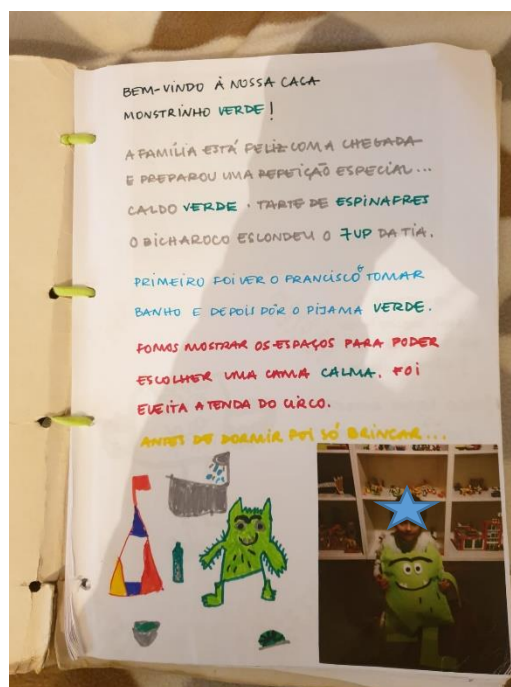 BEM-VINDO À NOSSA CACA
MONSTRINHO VERDE!
A FAMÍLIA ESTÁ FELIZ COM A CHEGADA
E PREPAROU UMA REFEIÇÃO ESPECIAL...
CALDO VERDE · TARTE DE ESPINAFRES
O BICHAROCO ESCONDEU O 7UP DA TIA.
PRIMEIRO FOI VER O FRANCISCO TOMAR
BANHO E DEPOIS PÔR O PIJAMA VERDE.
FOMOS MOSTRAR OS ESPAÇOS PARA PODER
ESCOLHER UMA CAMA CALMA. FOI
ELEITA A TENDA DO CIRCO.
ANTES DE DORMIR FOI SÓ BRINCAR...